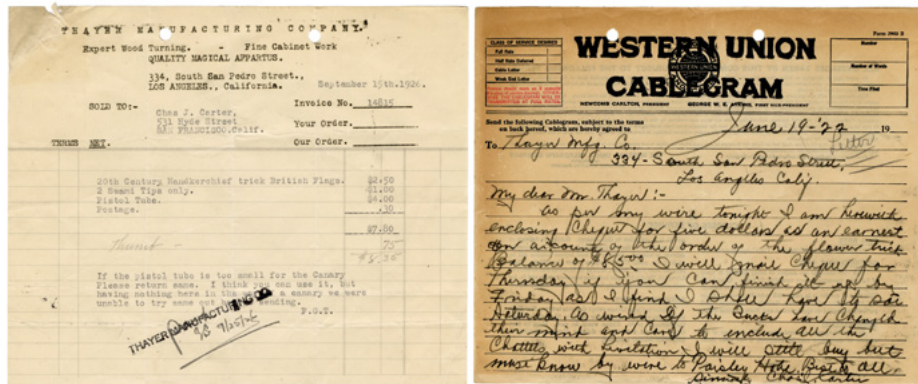 THAYER MANUFACTURING COMPANY.
Expert Wood Turning. - Fine Cabinet Work
QUALITY MAGICAL APPARTUS.
334, South San Pedro Street.,
LOS ANGELES., California.
September 15th.1926.
SOLD TO:-
Invoice No. 14815
Chas J. Carter,
531 Hyde Street
SAN FRANCISCO.Calif.
Your Order.
Our Order.
TERMS NET.
20th Century Handkerchief trick British Flags. $2.50
2 Swami Tips only. $1.00
Pistol Tube. $4.00
Postage. .30
$7.80
75
If the pistol tube is too small for the Canary
Please return same. I think you can use it, But
having nothing here in the a canary we were
unable to try same out before sending.
F.G.T.
THAYER MANUFACTURING CO.
WESTERN UNION
CABLEGRAM
WESTERN UNION
NEWCOMB CARLTON, PRESIDENT GEORGE W. E. ATKINS, FIRST VICE-PRESIDENT
CLASS OF SERVICE DESIRED
Full Rate
Half Rate Deferred
Cable Letter
Week End Letter
Number
Number of Words
Time Filed
Send the following Cablegram, subject to the terms
on back hereof, which are hereby agreed to
June 19-'22 19
To Thayer Mfg. Co.
Letter
334-South San Pedro Street,
Los Angeles Calif.
My dear Mr. Thayer:-
As per my wire tonight I am herewith
enclosing Cheque for five dollars as an earnest
on account of the order of the flower trick
Balance of $85.00 I will mail Cheque for
Thursday if you can finish it up by
Friday as I find I shall have to sail
Saturday. As wired If the have changed
their mind and care to include all the
with Levitation I will still buy but
must know by wire to Paisley Hotel Best to all.
Chas J Carter